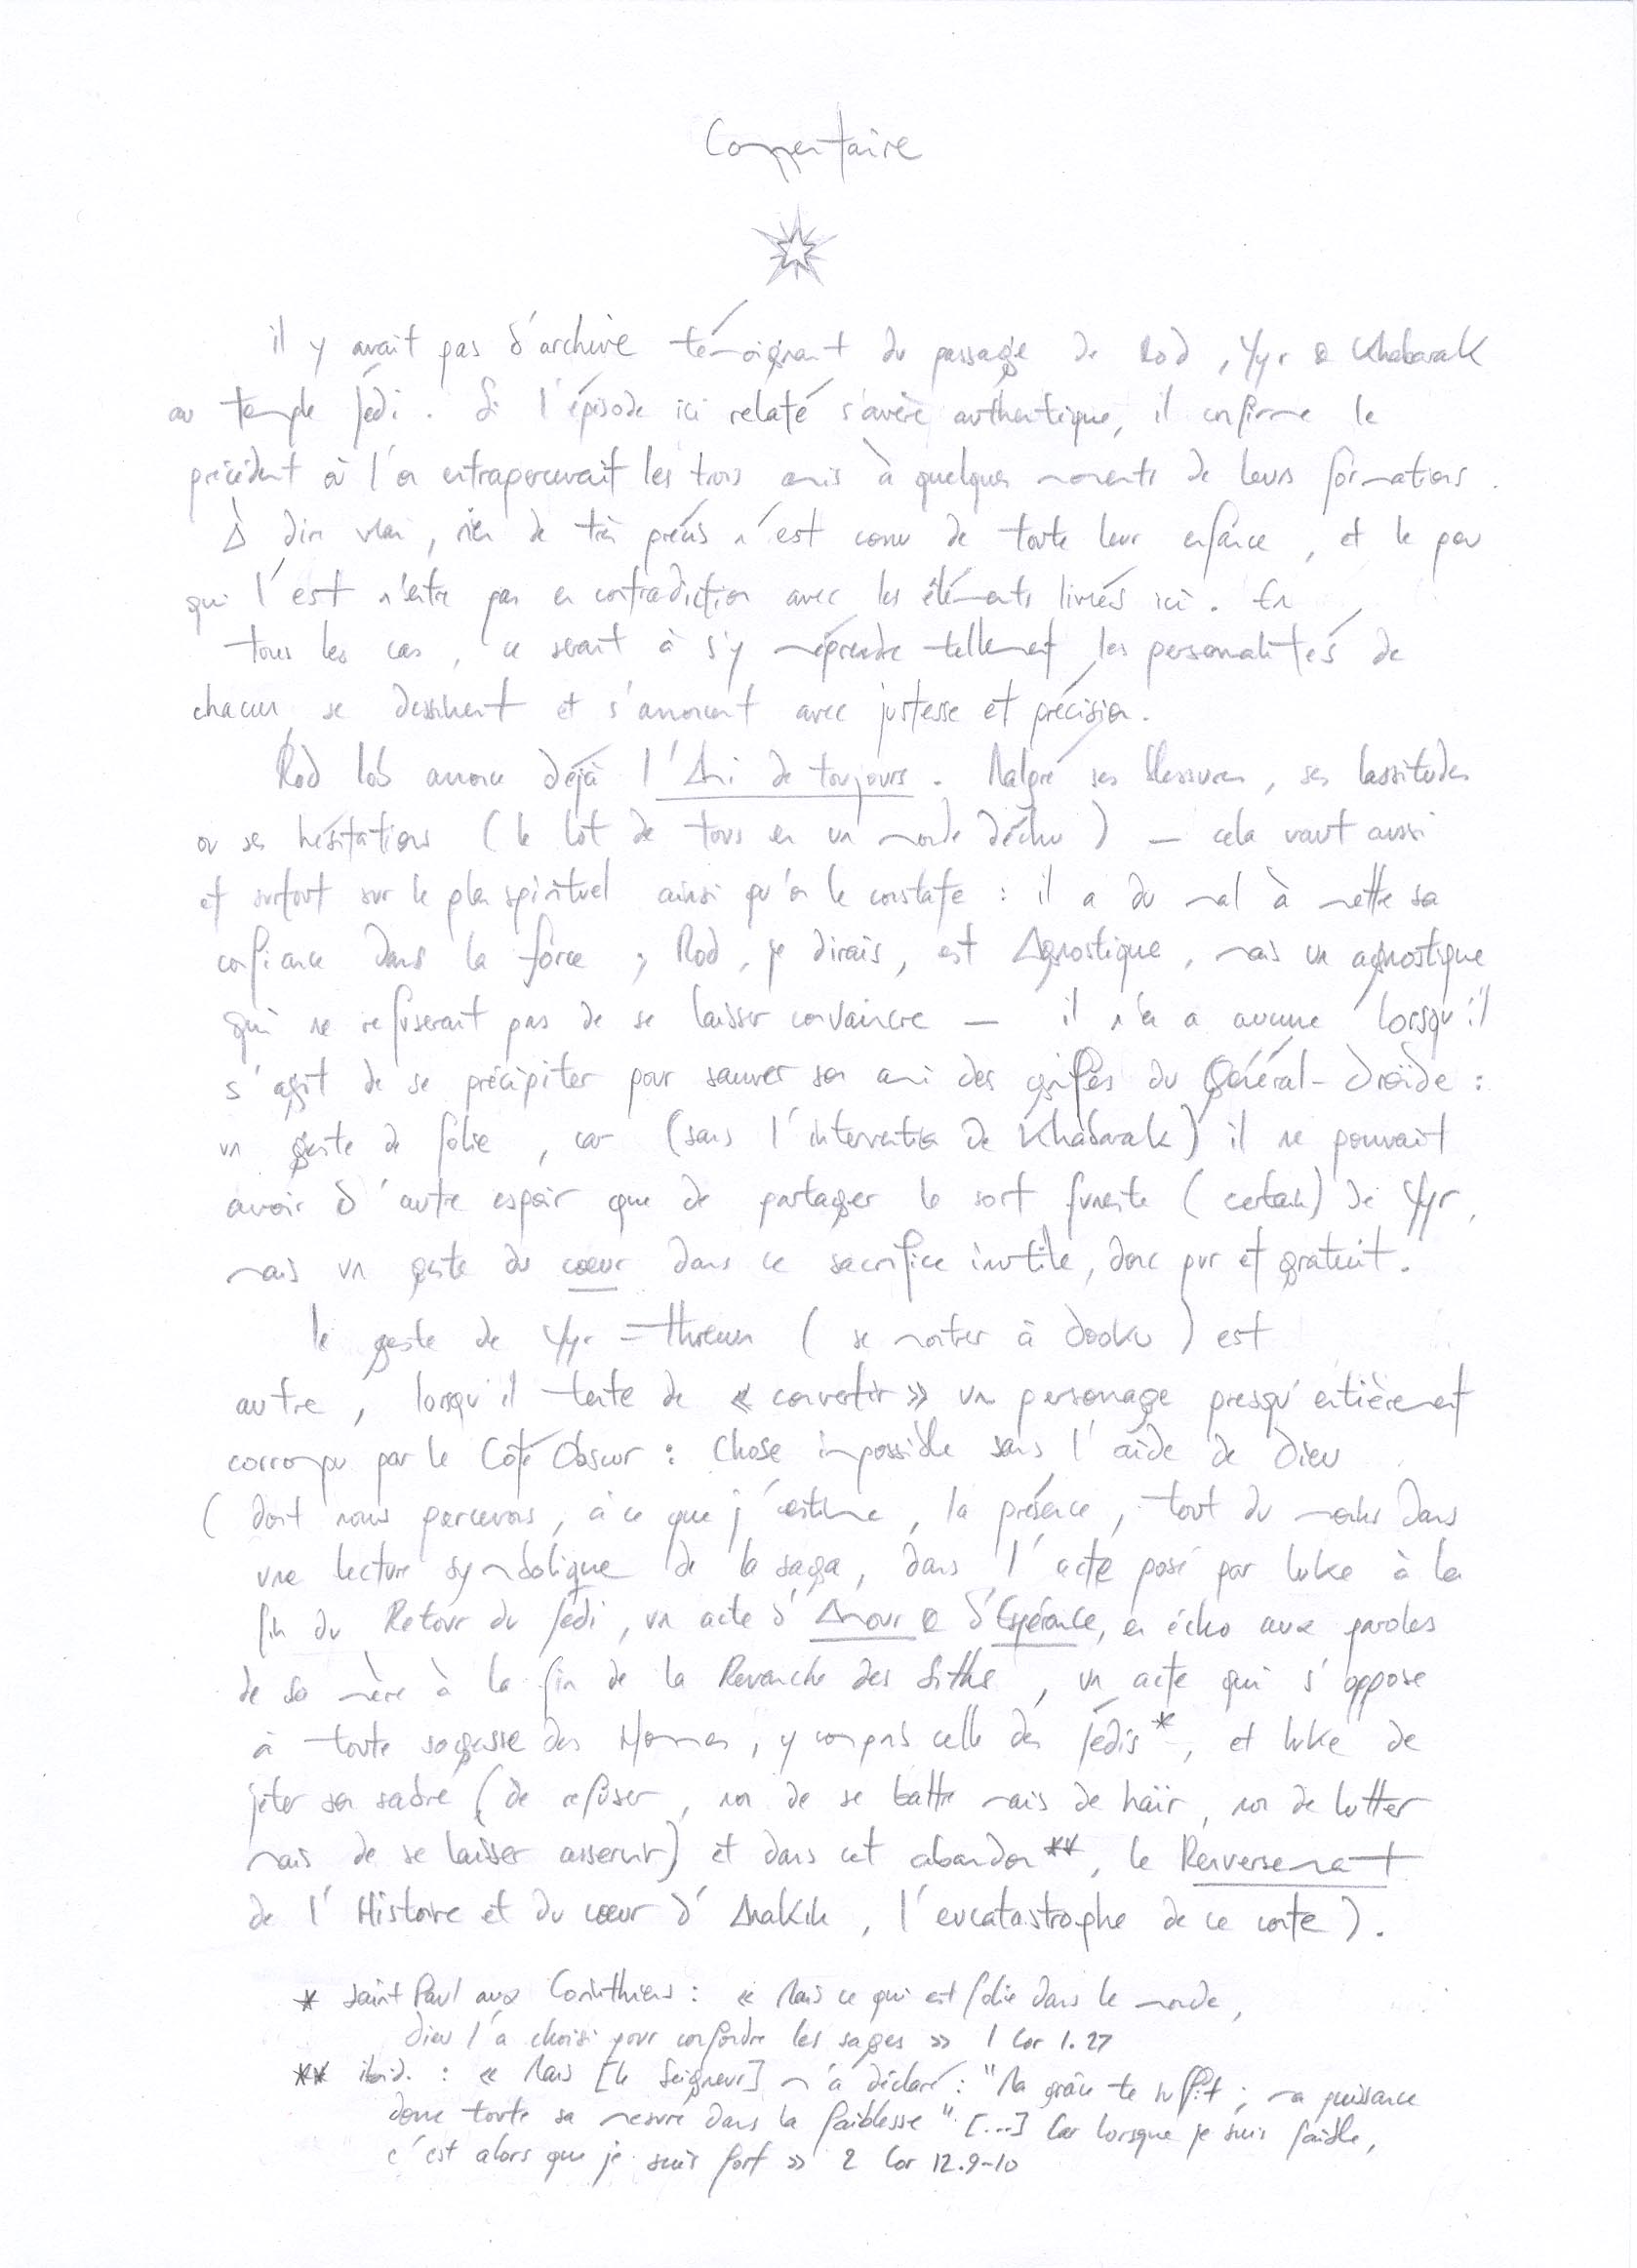 Commentaire
il y avait pas d'archive témoignant du passage de Rod, Yyr & Khabarak
au temple Jedi. Si l'épisode ici relaté s'avère authentique, il confirme le
précédent où l'on entrapercevait les trois amis à quelques moments de leurs formations.
À dire vrai, rien de très précis n'est connu de toute leur enfance, et le peu
qui l'est n'entre pas en contradiction avec les éléments livrés ici. En
tous les cas, ce serait à s'y méprendre tellement les personnalités de
chacun se dessinent et s'annoncent avec justesse et précision.
Rod annonce déjà l'Ami de toujours. Malgré ses blessures, ses lassitudes
ou ses hésitations (le lot de tous en un monde déchu) — cela vaut aussi
et surtout sur le plan spirituel ainsi qu'on le constate : il a du mal à mettre sa
confiance dans la force ; Rod, je dirais, est Agnostique, mais un agnostique
qui ne refuserait pas de se laisser convaincre — il n'en a aucune lorsqu'il
s'agit de se précipiter pour sauver son ami des griffes du Général-Droïde :
un geste de folie, car (sans l'intervention de Khabarak) il ne pouvait
avoir d'autre espoir que de partager le sort funeste (certain) de Yyr,
mais un geste du cœur dans ce sacrifice inutile, donc pur et gratuit.
le geste de Yyr (se montrer à Dooku) est
autre, lorsqu'il tente de « convertir » un personnage presqu'entièrement
corrompu par le Côté Obscur : Chose impossible sans l'aide de Dieu
(dont nous percevons, à ce que j'estime, la présence, tout du moins dans
une lecture symbolique de la saga, dans l'acte posé par Luke à la
fin du Retour du Jedi, un acte d'Amour & d'Espérance, en écho aux paroles
de sa mère à la fin de la Revanche des Siths, un acte qui s'oppose
à toute sagesse des Hommes, y compris celle des Jédis*, et Luke de
jeter son sabre (de refuser, non de se battre mais de haïr, non de lutter
mais de se laisser asservir) et dans cet abandon**, le Renversement
de l'Histoire et du cœur d'Anakin, l'eucatastrophe de ce conte).
* saint Paul aux Corinthiens : « Mais ce qui est folie dans le monde,
Dieu l'a choisi pour confondre les sages » 1 Cor 1.27
** ibid. : « Mais [le Seigneur] m'a déclaré : "Ma grâce te suffit ; ma puissance
donne toute sa mesure dans la faiblesse". [...] Car lorsque je suis faible,
c'est alors que je suis fort » 2 Cor 12.9-10